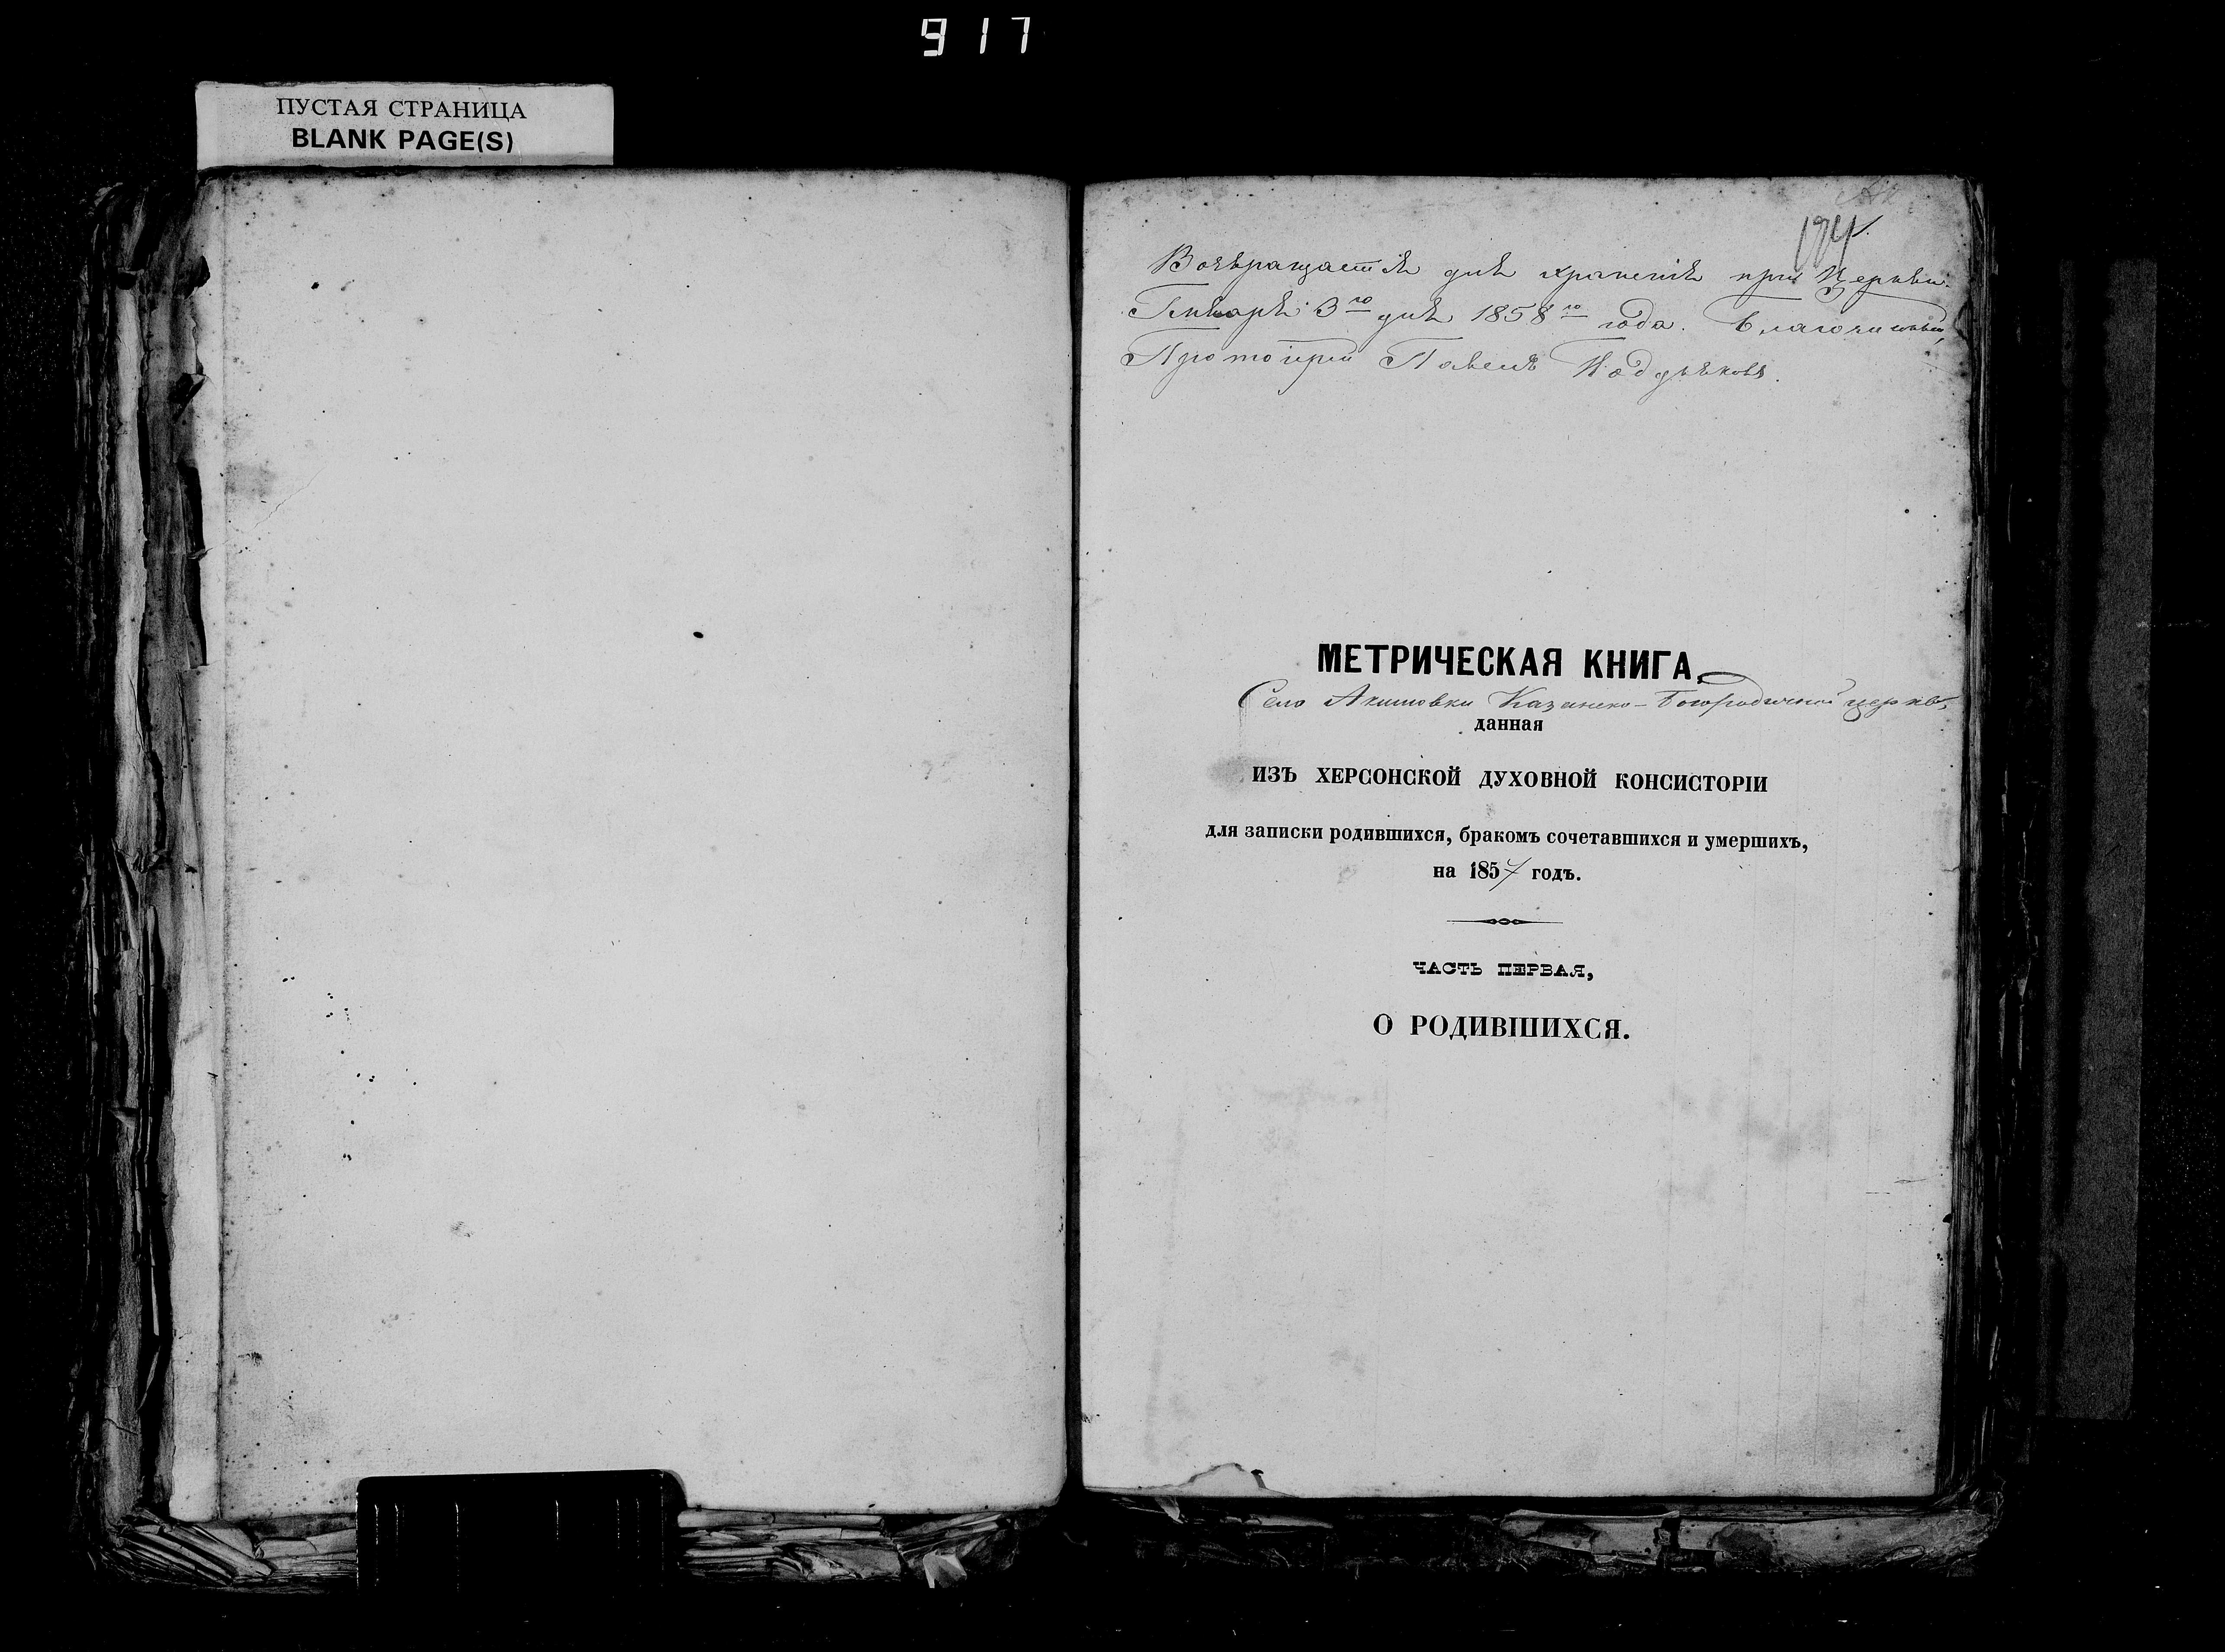 917
ПУСТАЯ СТРАНИЦА
BLANK PAGE(S)
194
Возвращается для храненія при Церкви.
Генваря 3го дня 1858го года. Благочинный,
Протоіерей Павелъ
МЕТРИЧЕСКАЯ КНИГА,
Село Акимовки Казанско-Богородичной церкви,
данная
ИЗЪ ХЕРСОНСКОЙ ДУХОВНОЙ КОНСИСТОРІИ
для записки родившихся, бракомъ сочетавшихся и умершихъ,
на 1857 годъ.
ЧАСТЬ ПЕРВАЯ,
О РОДИВШИХСЯ.